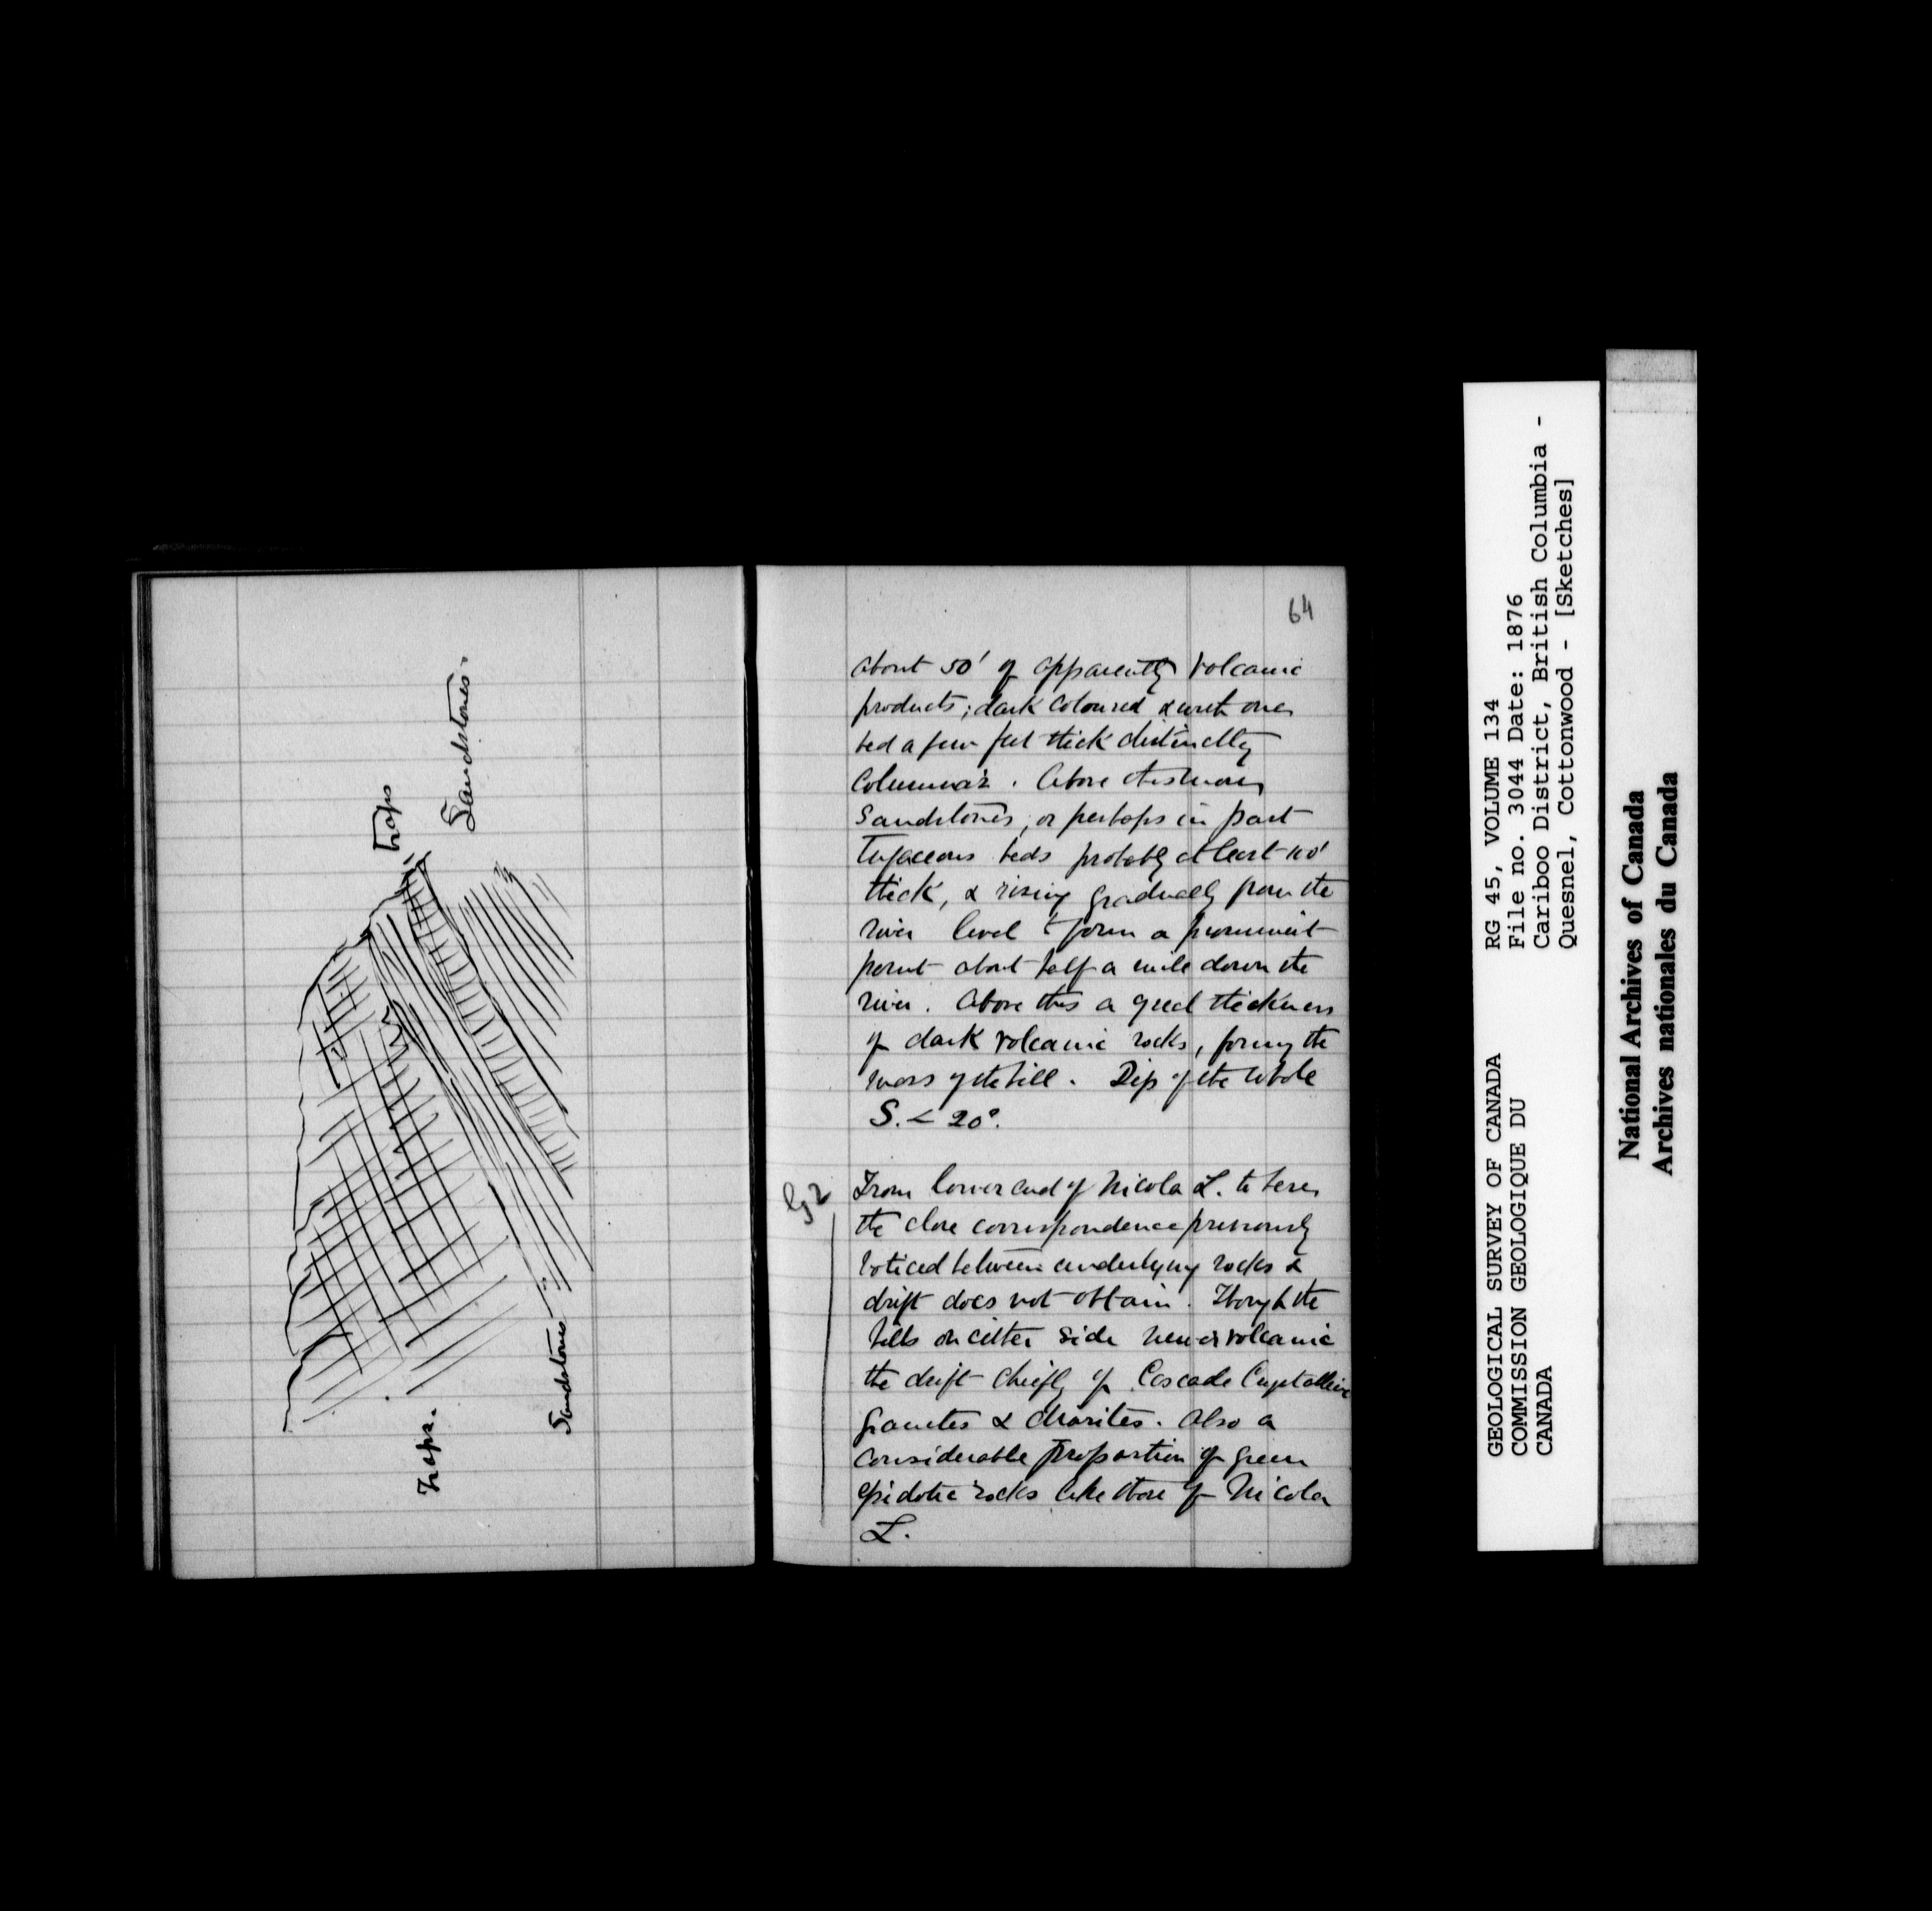 Traps
Sandstones.
Traps.
Sandstones
64
about 50' of apparently volcanic
products; dark coloured & with one
bed a few feet thick distinctly
Columnar. Above this more
Sandstones, or perhaps in part
Tufaceous beds probably at least 100'
thick, & rising gradually from the
river level to form a prominent
point about half a mile down the
river. Above this a great thickness
of dark volcanic rocks, formg the
mass of the hill. Dip of the whole
S. < 20°.
From lower end of Nicola L. to here
the close correspondence previously
noticed between underlying rocks &
drift does not obtain. Though the
hills on either side newer volcanic
the drift chiefly of Cascade Crystalline
granites & diorites. Also a
considerable proportion of green
epidotic rocks like those of Nicola
L.
GEOLOGICAL SURVEY OF CANADA
COMMISSION GEOLOGIQUE DU
CANADA
RG 45, VOLUME 134
File no. 3044 Date: 1876
Cariboo District, British Columbia -
Quesnel, Cottonwood - [Sketches]
National Archives of Canada
Archives nationales du Canada